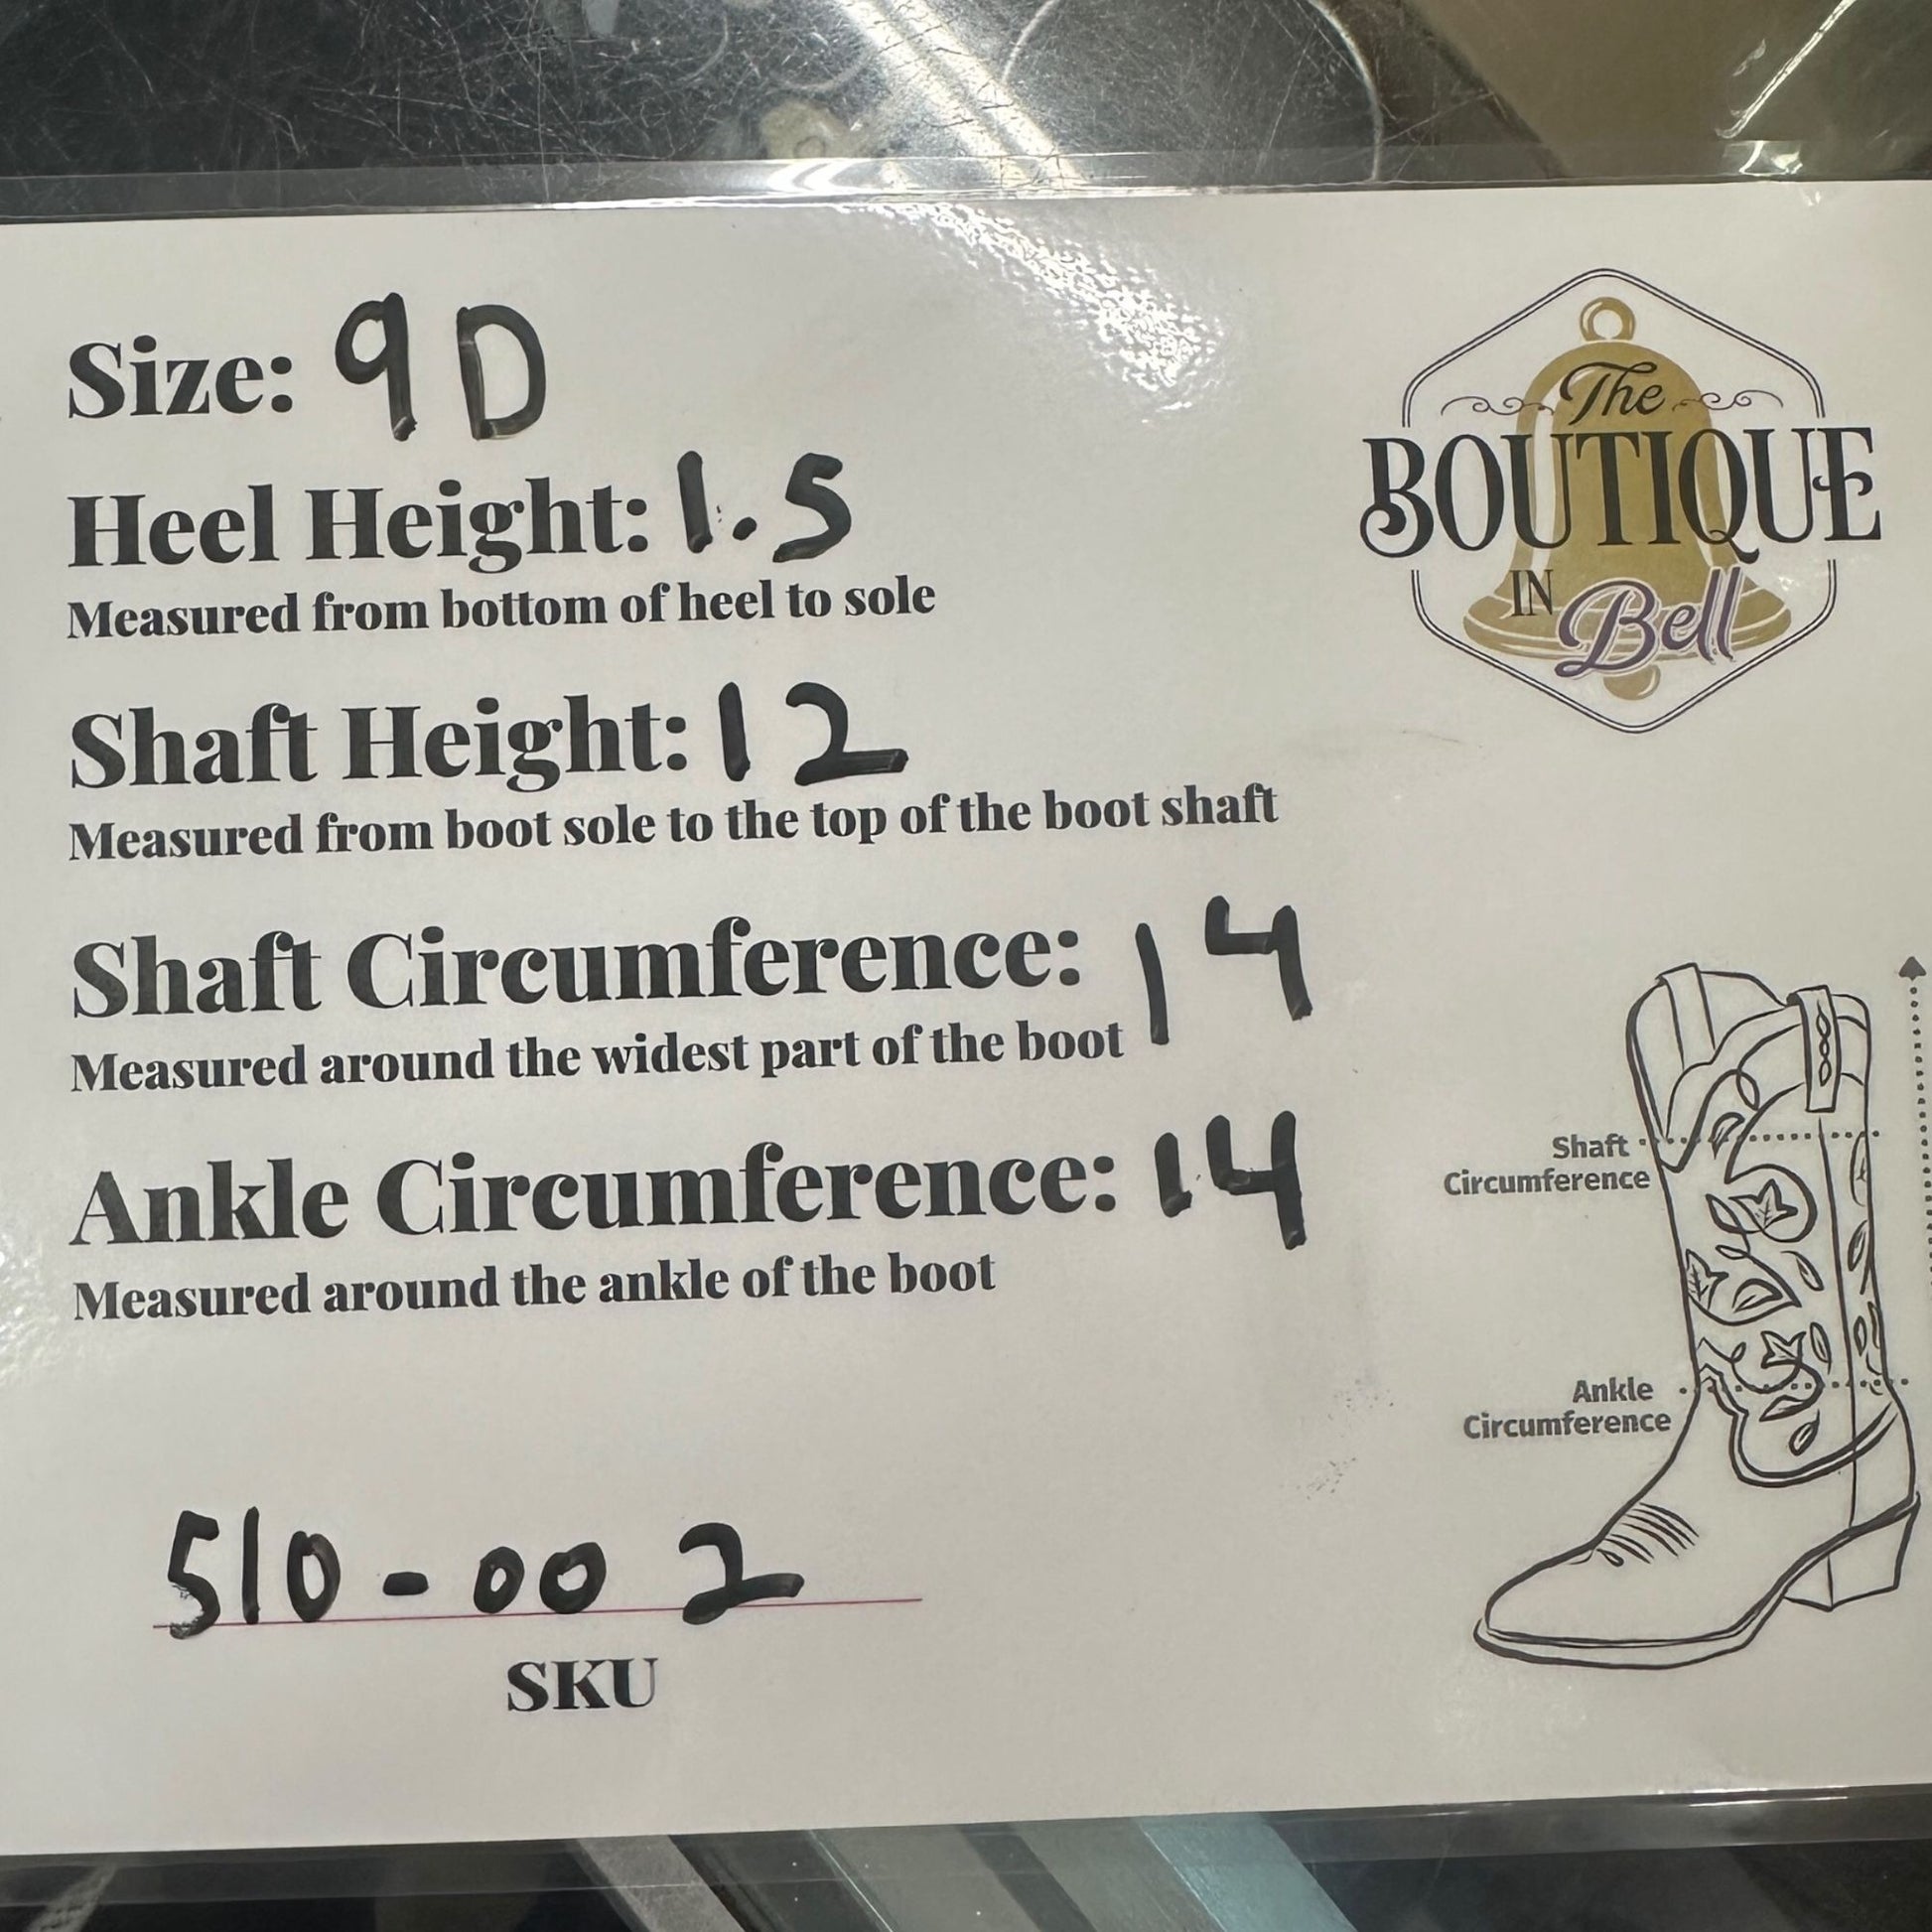 Size: 9D
Heel Height: 1.5
Measured from bottom of heel to sole
Shaft Height: 12
Measured from boot sole to the top of the boot shaft
Shaft Circumference: 14
Measured around the widest part of the boot
Ankle Circumference: 14
Measured around the ankle of the boot
510-002
SKU
The
BOUTIQUE
IN Bell
Shaft
Circumference
Ankle
Circumference